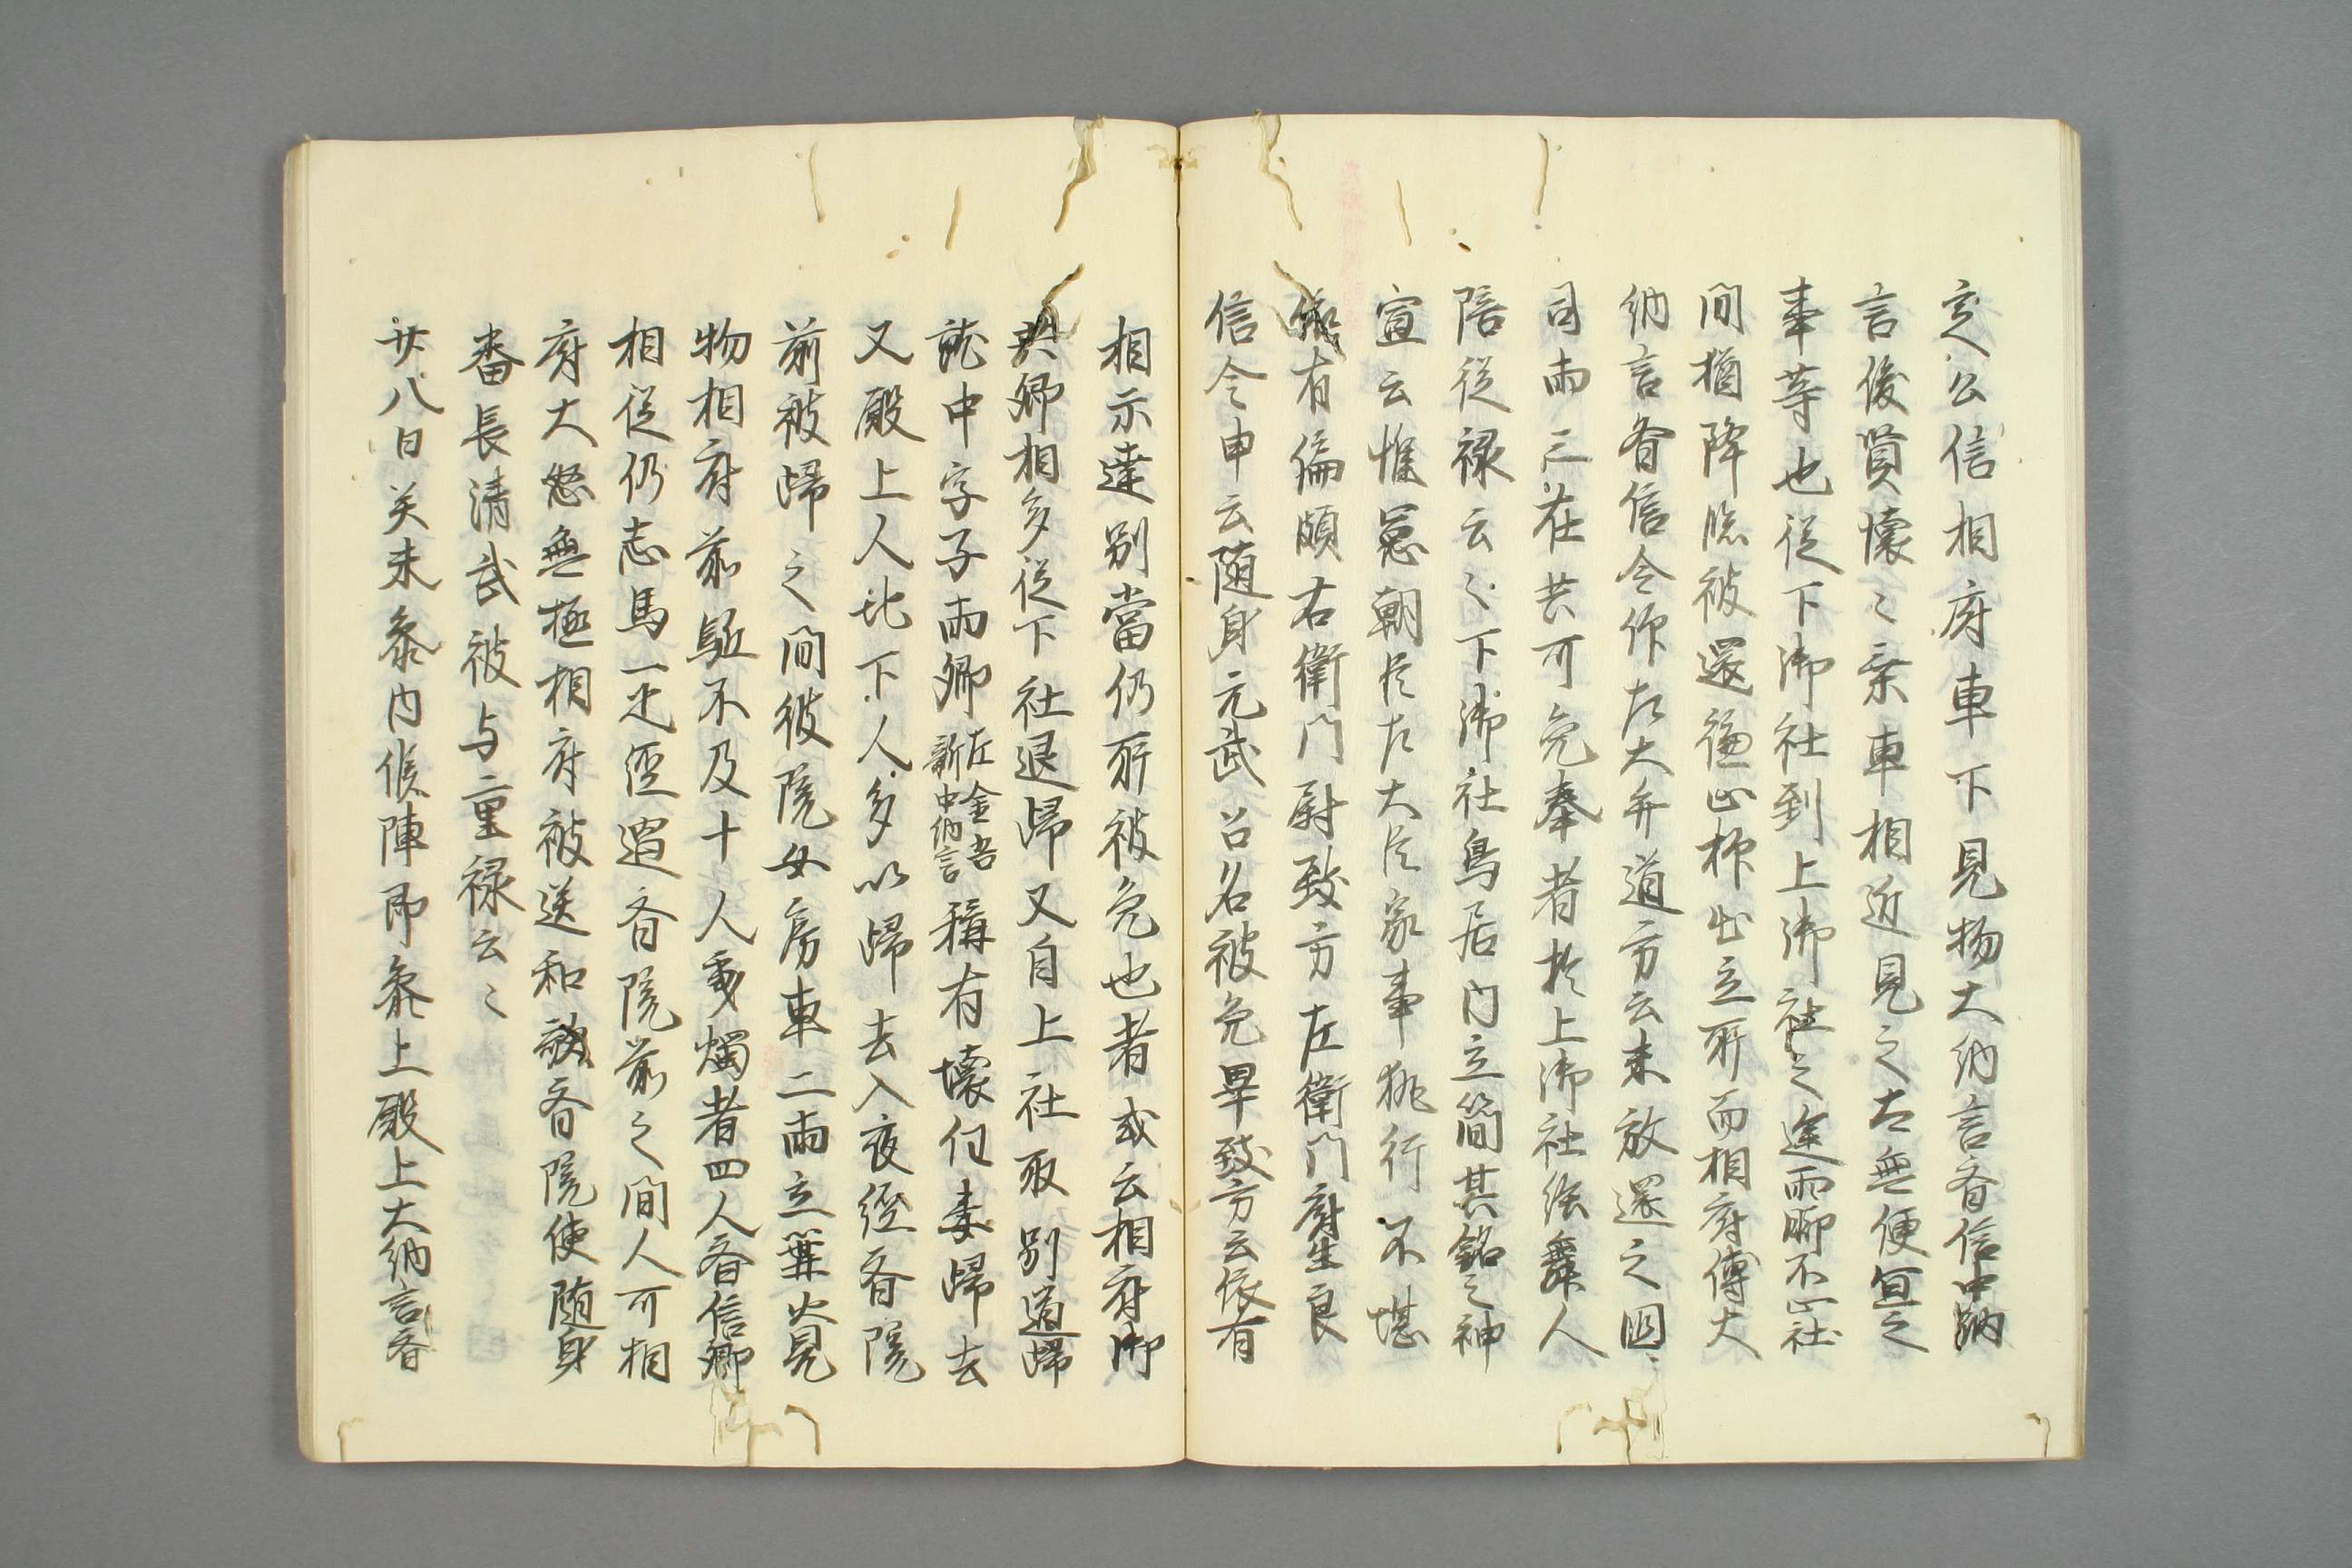 定公信相府車下見物大納言斉信中納
言俊賢懐〻乗車相近見之太無便宜之
事等也従下御社到上御社之途雨聊不止社
間猶降臨被還御止柳出立所而相府傳大
納言斉信令作左大弁道方云未放還之囚
司雨三在共可免奉者於上御社給舞人
陪従禄云〻下御社鳥居内立簡其銘之神
宣云惟忌朝臣左大臣家事執行不堪
有偏頗右衛門尉致方左衛門府生良
信令申云随身元武召名被免畢致方云依有
相示達別當仍所被免也者或云相府御
共卿相多従下社退歸又自上社取別道歸
就中字子両卿左金吾新中納言稱有壊但妻歸去
又殿上人比下人多以歸去入夜經斉院
前被歸之間彼院女房車二両立葉火見
物相府前駈不及十人乗燭者四人斉信卿
相従仍志馬一疋經過斉院前之間人可相
府大怒無極相府被送和歌斉院使随身
番長清武被与二重禄云〻
廿八日癸未参内候陣即参上殿上大納言斉